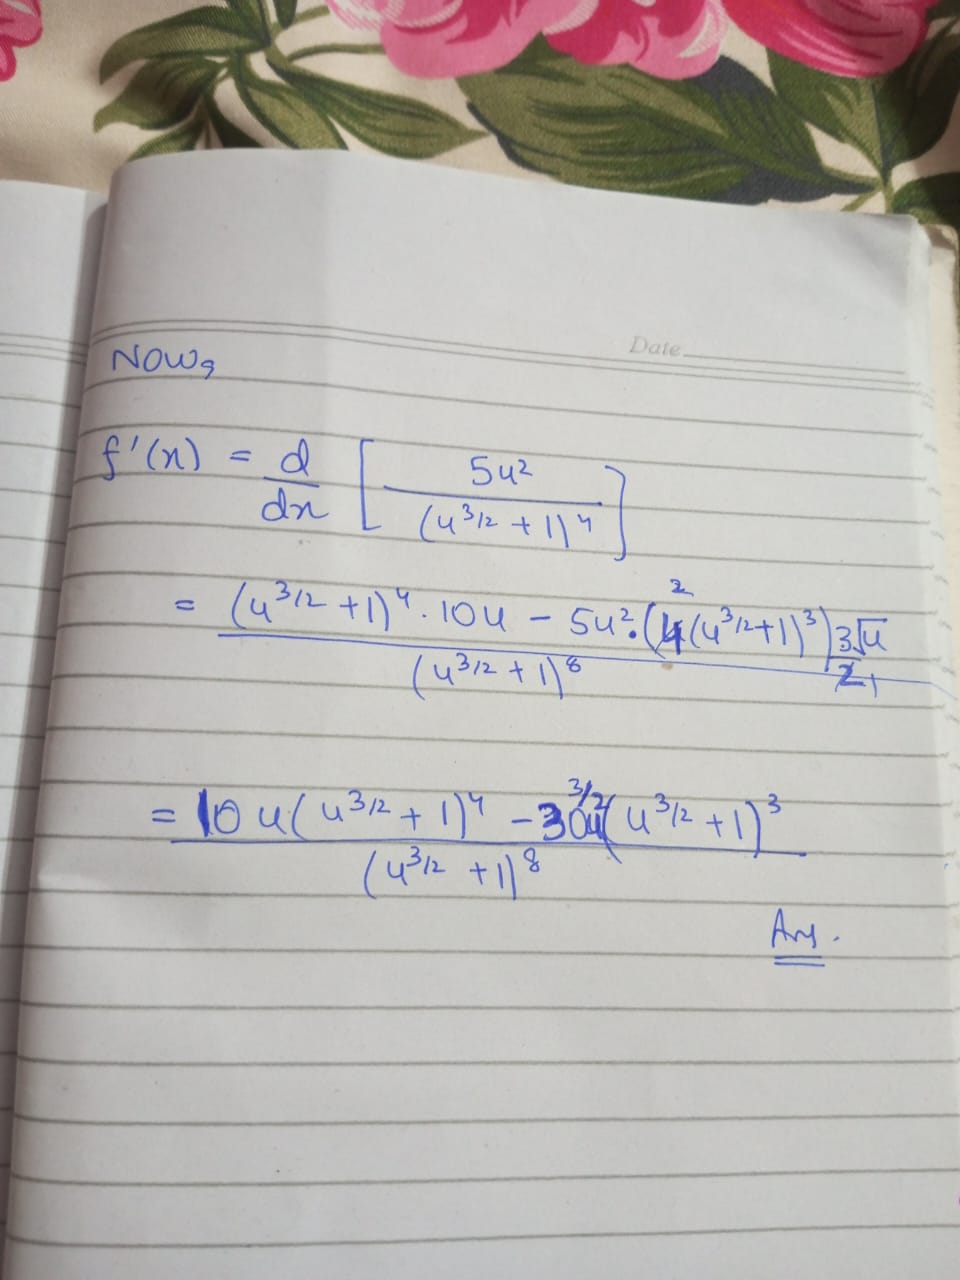 Date
Now,
f'(x) = d/dx [ 5u² / (u^3/2 + 1)^4 ]
= (u^3/2 + 1)^4 . 10u - 5u² . (4 2 (u^3/2 + 1)^3) 3√u / 2 1 / (u^3/2 + 1)^8
= 10u(u^3/2 + 1)^4 - 30u^3/2 (u^3/2 + 1)^3 / (u^3/2 + 1)^8
Ans.